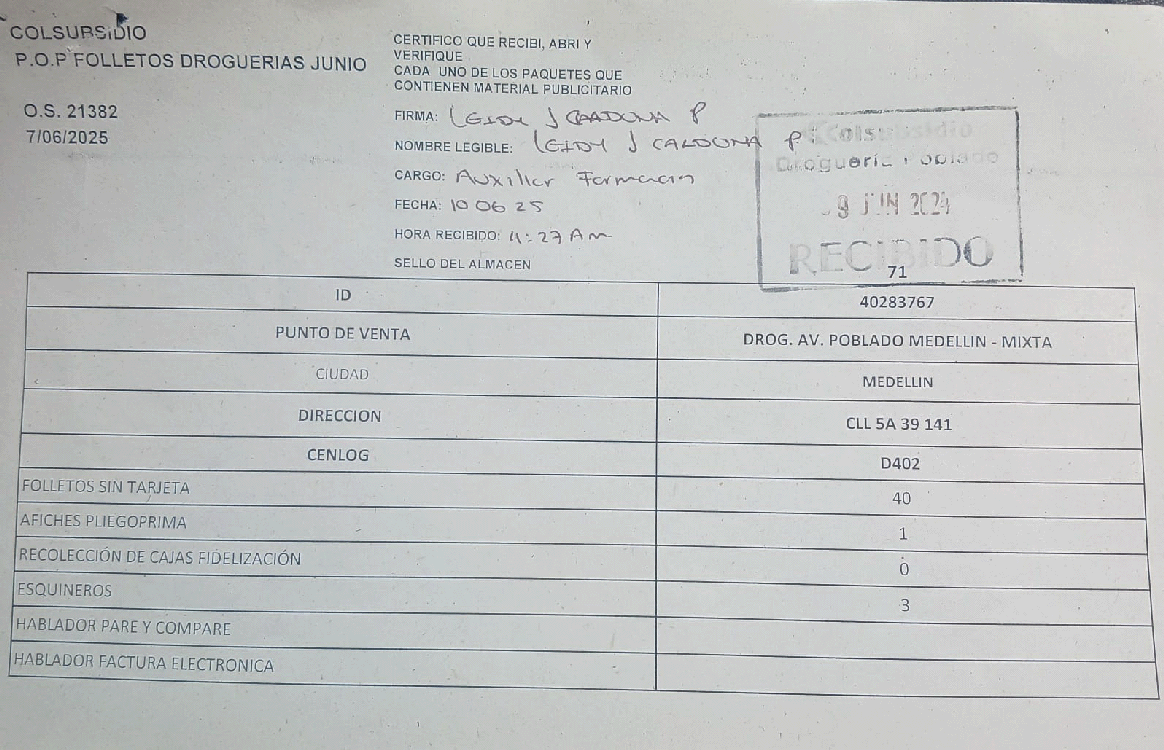 COLSUBSIDIO
P.O.P FOLLETOS DROGUERIAS JUNIO
O.S. 21382
7/06/2025
CERTIFICO QUE RECIBI, ABRI Y
VERIFIQUE
CADA UNO DE LOS PAQUETES QUE
CONTIENEN MATERIAL PUBLICITARIO
FIRMA: Leidy J Cardona P
NOMBRE LEGIBLE: Leidy J Cardona P
CARGO: Auxiliar Farmacia
FECHA: 10 06 25
HORA RECIBIDO: 11:27 Am
SELLO DEL ALMACEN
Colsubsidio
Droguería Poblado
9 JUN 202
RECIBIDO
71
ID 40283767
PUNTO DE VENTA DROG. AV. POBLADO MEDELLIN - MIXTA
CIUDAD MEDELLIN
DIRECCION CLL 5A 39 141
CENLOG D402
FOLLETOS SIN TARJETA 40
AFICHES PLIEGOPRIMA 1
RECOLECCIÓN DE CAJAS FIDELIZACIÓN 0
ESQUINEROS 3
HABLADOR PARE Y COMPARE
HABLADOR FACTURA ELECTRONICA